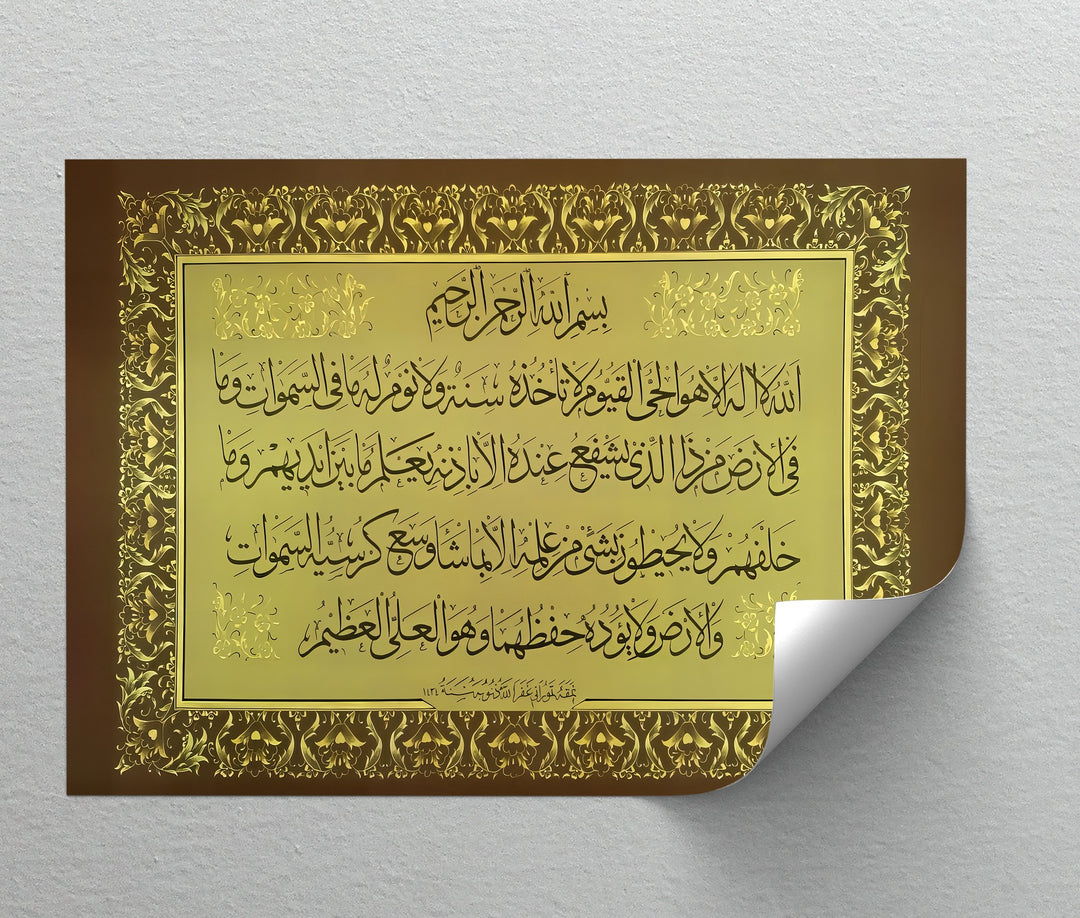 بِسْمِ اللهِ الرَّحْمٰنِ الرَّحِيمِ
اَللّٰهُ لَا اِلٰهَ اِلَّا هُوَ الْحَىُّ الْقَيُّومُ لَا تَأْخُذُهُ سِنَةٌ وَلَا نَوْمٌ لَهُ مَا فِى السَّمٰوَاتِ وَمَا
فِى الْاَرْضِ مَنْ ذَا الَّذِى يَشْفَعُ عِنْدَهُ اِلَّا بِاِذْنِهِ يَعْلَمُ مَا بَيْنَ اَيْدِيهِمْ وَمَا
خَلْفَهُمْ وَلَا يُحِيطُونَ بِشَىْءٍ مِنْ عِلْمِهِ اِلَّا بِمَا شَاءَ وَسِعَ كُرْسِيُّهُ السَّمٰوَاتِ
وَالْاَرْضَ وَلَا يَؤُدُهُ حِفْظُهُمَا وَهُوَ الْعَلِىُّ الْعَظِيمُ
نمقه غفر الله ذنوبه سنة ١٤٣٤